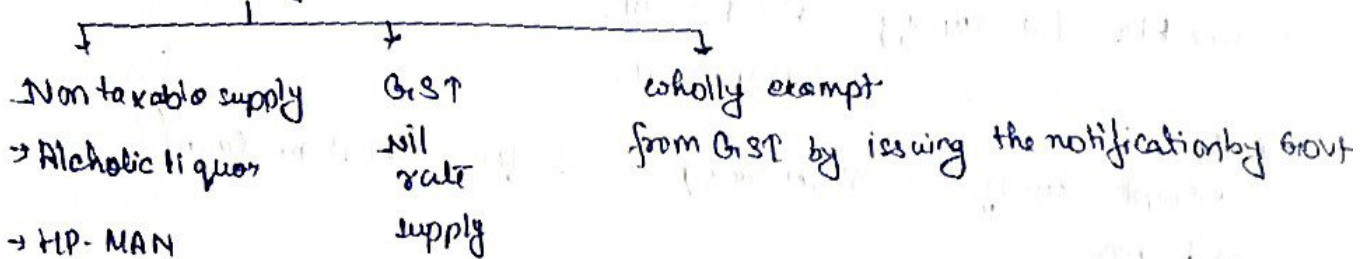 Non taxable supply
→ Alcholic liquor
→ HP- MAN
GST
Nil
rate
supply
wholly exampt
from GST by issuing the notification by Govt